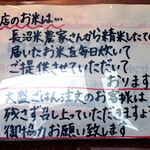 店のお米は…
長沼米農家さんから精米したての
届いたお米を毎日炊いて
ご提供させていただいて
おります
大盛ごはん注文のお客様は
残さず召し上っていただきますよう
御協力お願い致します